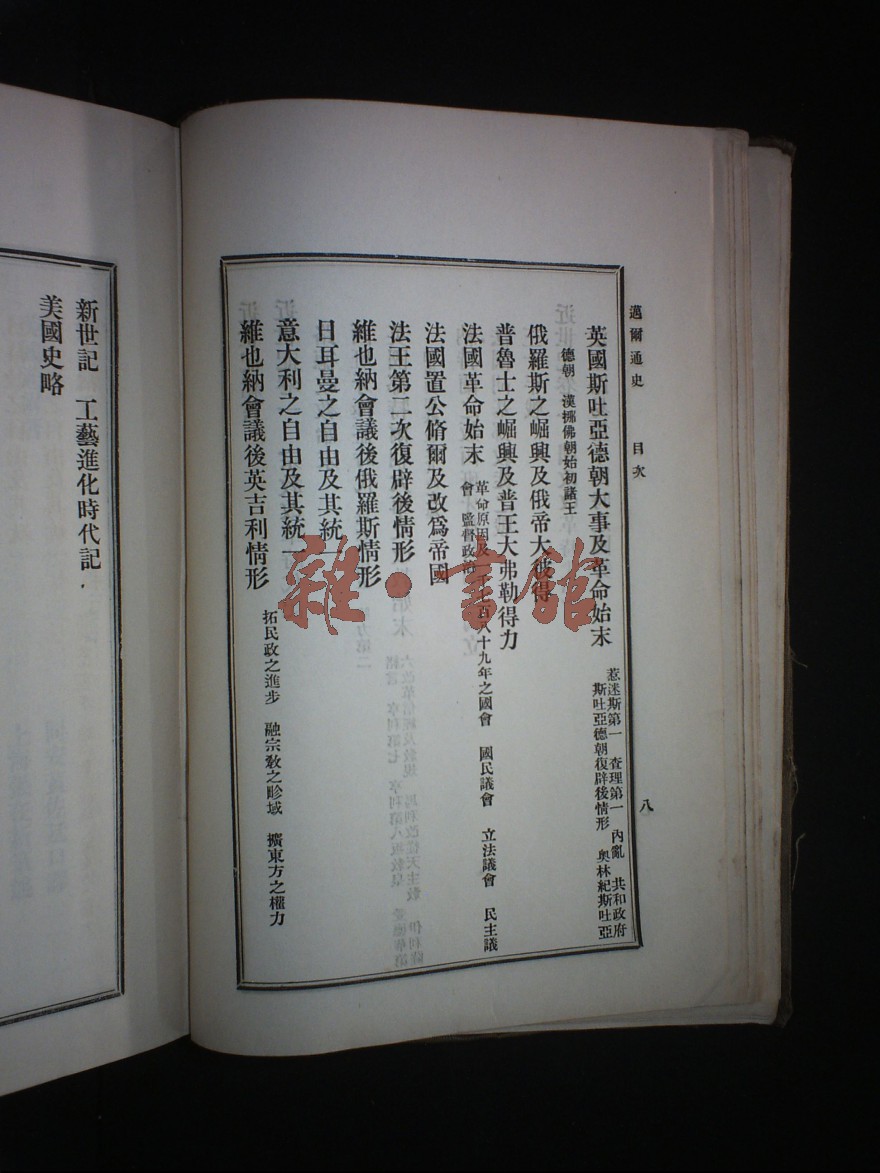 邁爾通史　目次　八
英國斯吐亞德朝大事及革命始末　惹迷斯第一　查理第一　內亂　共和政府
斯吐亞德朝復辟後情形　奧林紀斯吐亞
德朝　漢挪佛朝始初諸王
俄羅斯之崛興及俄帝大彼得
普魯士之崛興及普王大弗勒得力
法國革命始末　革命原因及一千七百八十九年之國會　國民議會　立法議會　民主議
會　監督政治
法國置公脩爾及改爲帝國
法王第二次復辟後情形
維也納會議後俄羅斯情形
日耳曼之自由及其統一
意大利之自由及其統一
維也納會議後英吉利情形　拓民政之進步　融宗教之畛域　擴東方之權力
新世記　工藝進化時代記
美國史略
雜·書館